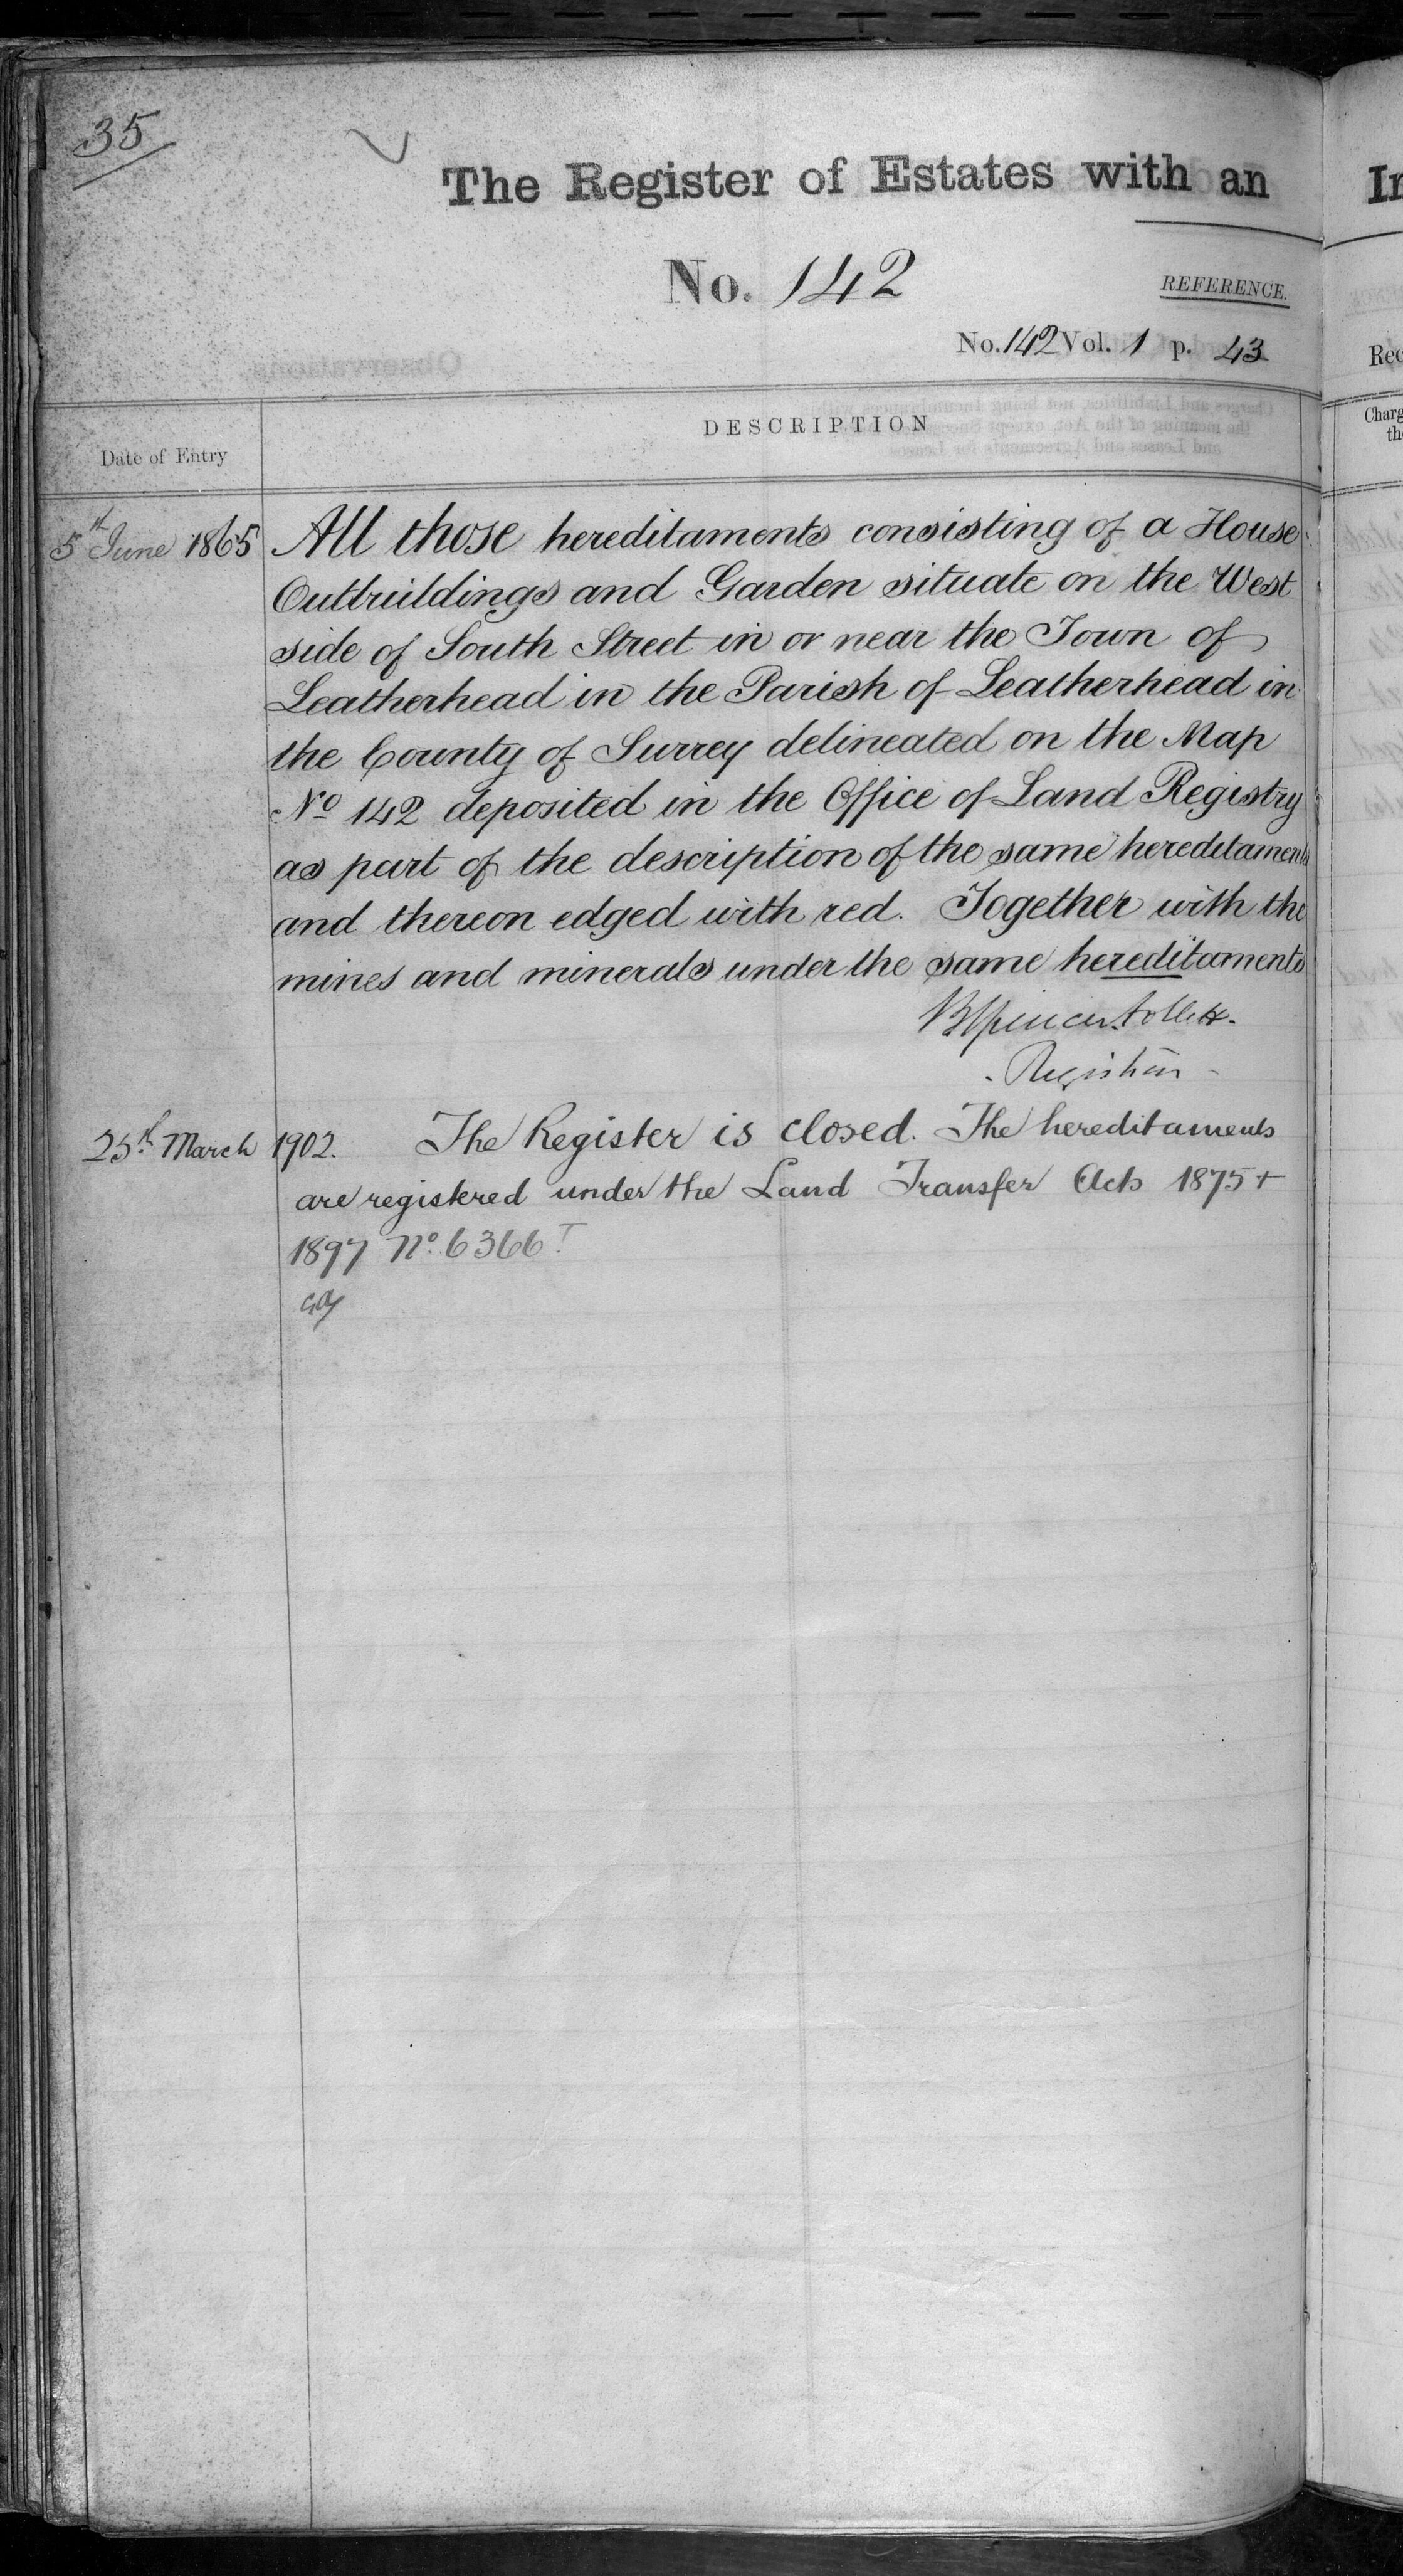 35
The Register of Estates with an
No. 142
REFERENCE.
No. 142 Vol. 1 p. 43
Date of Entry
DESCRIPTION
5th June 1865 All those hereditaments consisting of a House
Outbuildings and Garden situate on the West
side of South Street in or near the Town of
Leatherhead in the Parish of Leatherhead in
the County of Surrey delineated on the Map
No 142 deposited in the Office of Land Registry
as part of the description of the same hereditaments
and thereon edged with red. Together with the
mines and minerals under the same hereditaments
Registrar
25th March 1902. The Register is closed. The hereditaments
are registered under the Land Transfer Acts 1875 +
1897 No. 6366
In
Rec
Charg
th